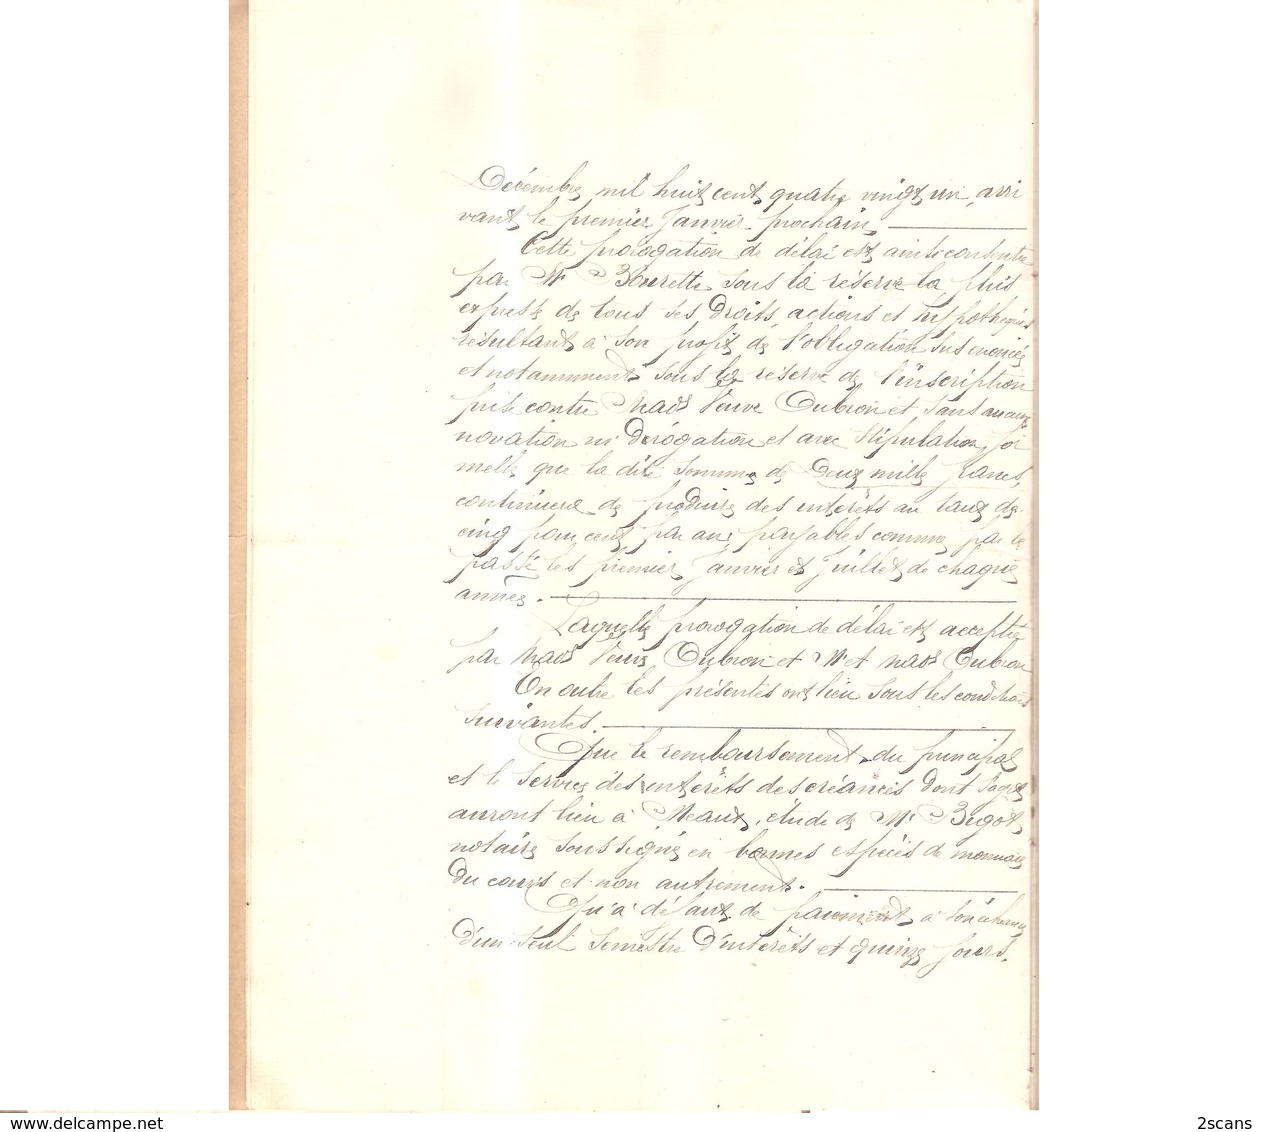 Décembre mil huit cent quatre vingt un, arri
vant le premier Janvier prochain
Cette prorogation de délai est ainsi consentie
par Mr Bourette sous la réserve la plus
expresse de tous ses droits actions et hypothèques
résultant à son profit de l'obligation sus énoncée
et notamment sous la réserve de l'inscription
prise contre Made Veuve Oubron et sans aucune
novation ni dérogation et avec stipulation for
melle que la dite somme de Deux mille francs,
continuera de produire des intérêts au taux de
cinq pour cent par an, payables comme par le
passé les premier Janvier et Juillet de chaque
année.
Laquelle prorogation de délai est acceptée
par Made Veuve Oubron et Mr et Made Oubron
En outre les présentes ont lieu sous les conditions
suivantes.
Que le remboursement du principal
et le service des intérêts des créances dont s'agit
auront lieu à Meaux, étude de Me Bigot,
notaire soussigné en bonnes espèces de monnaie
du cours et non autrement.
Qu'à défaut de paiement à son échéance
d'un seul semestre d'intérêts et quinze jours
www.delcampe.net
2scans